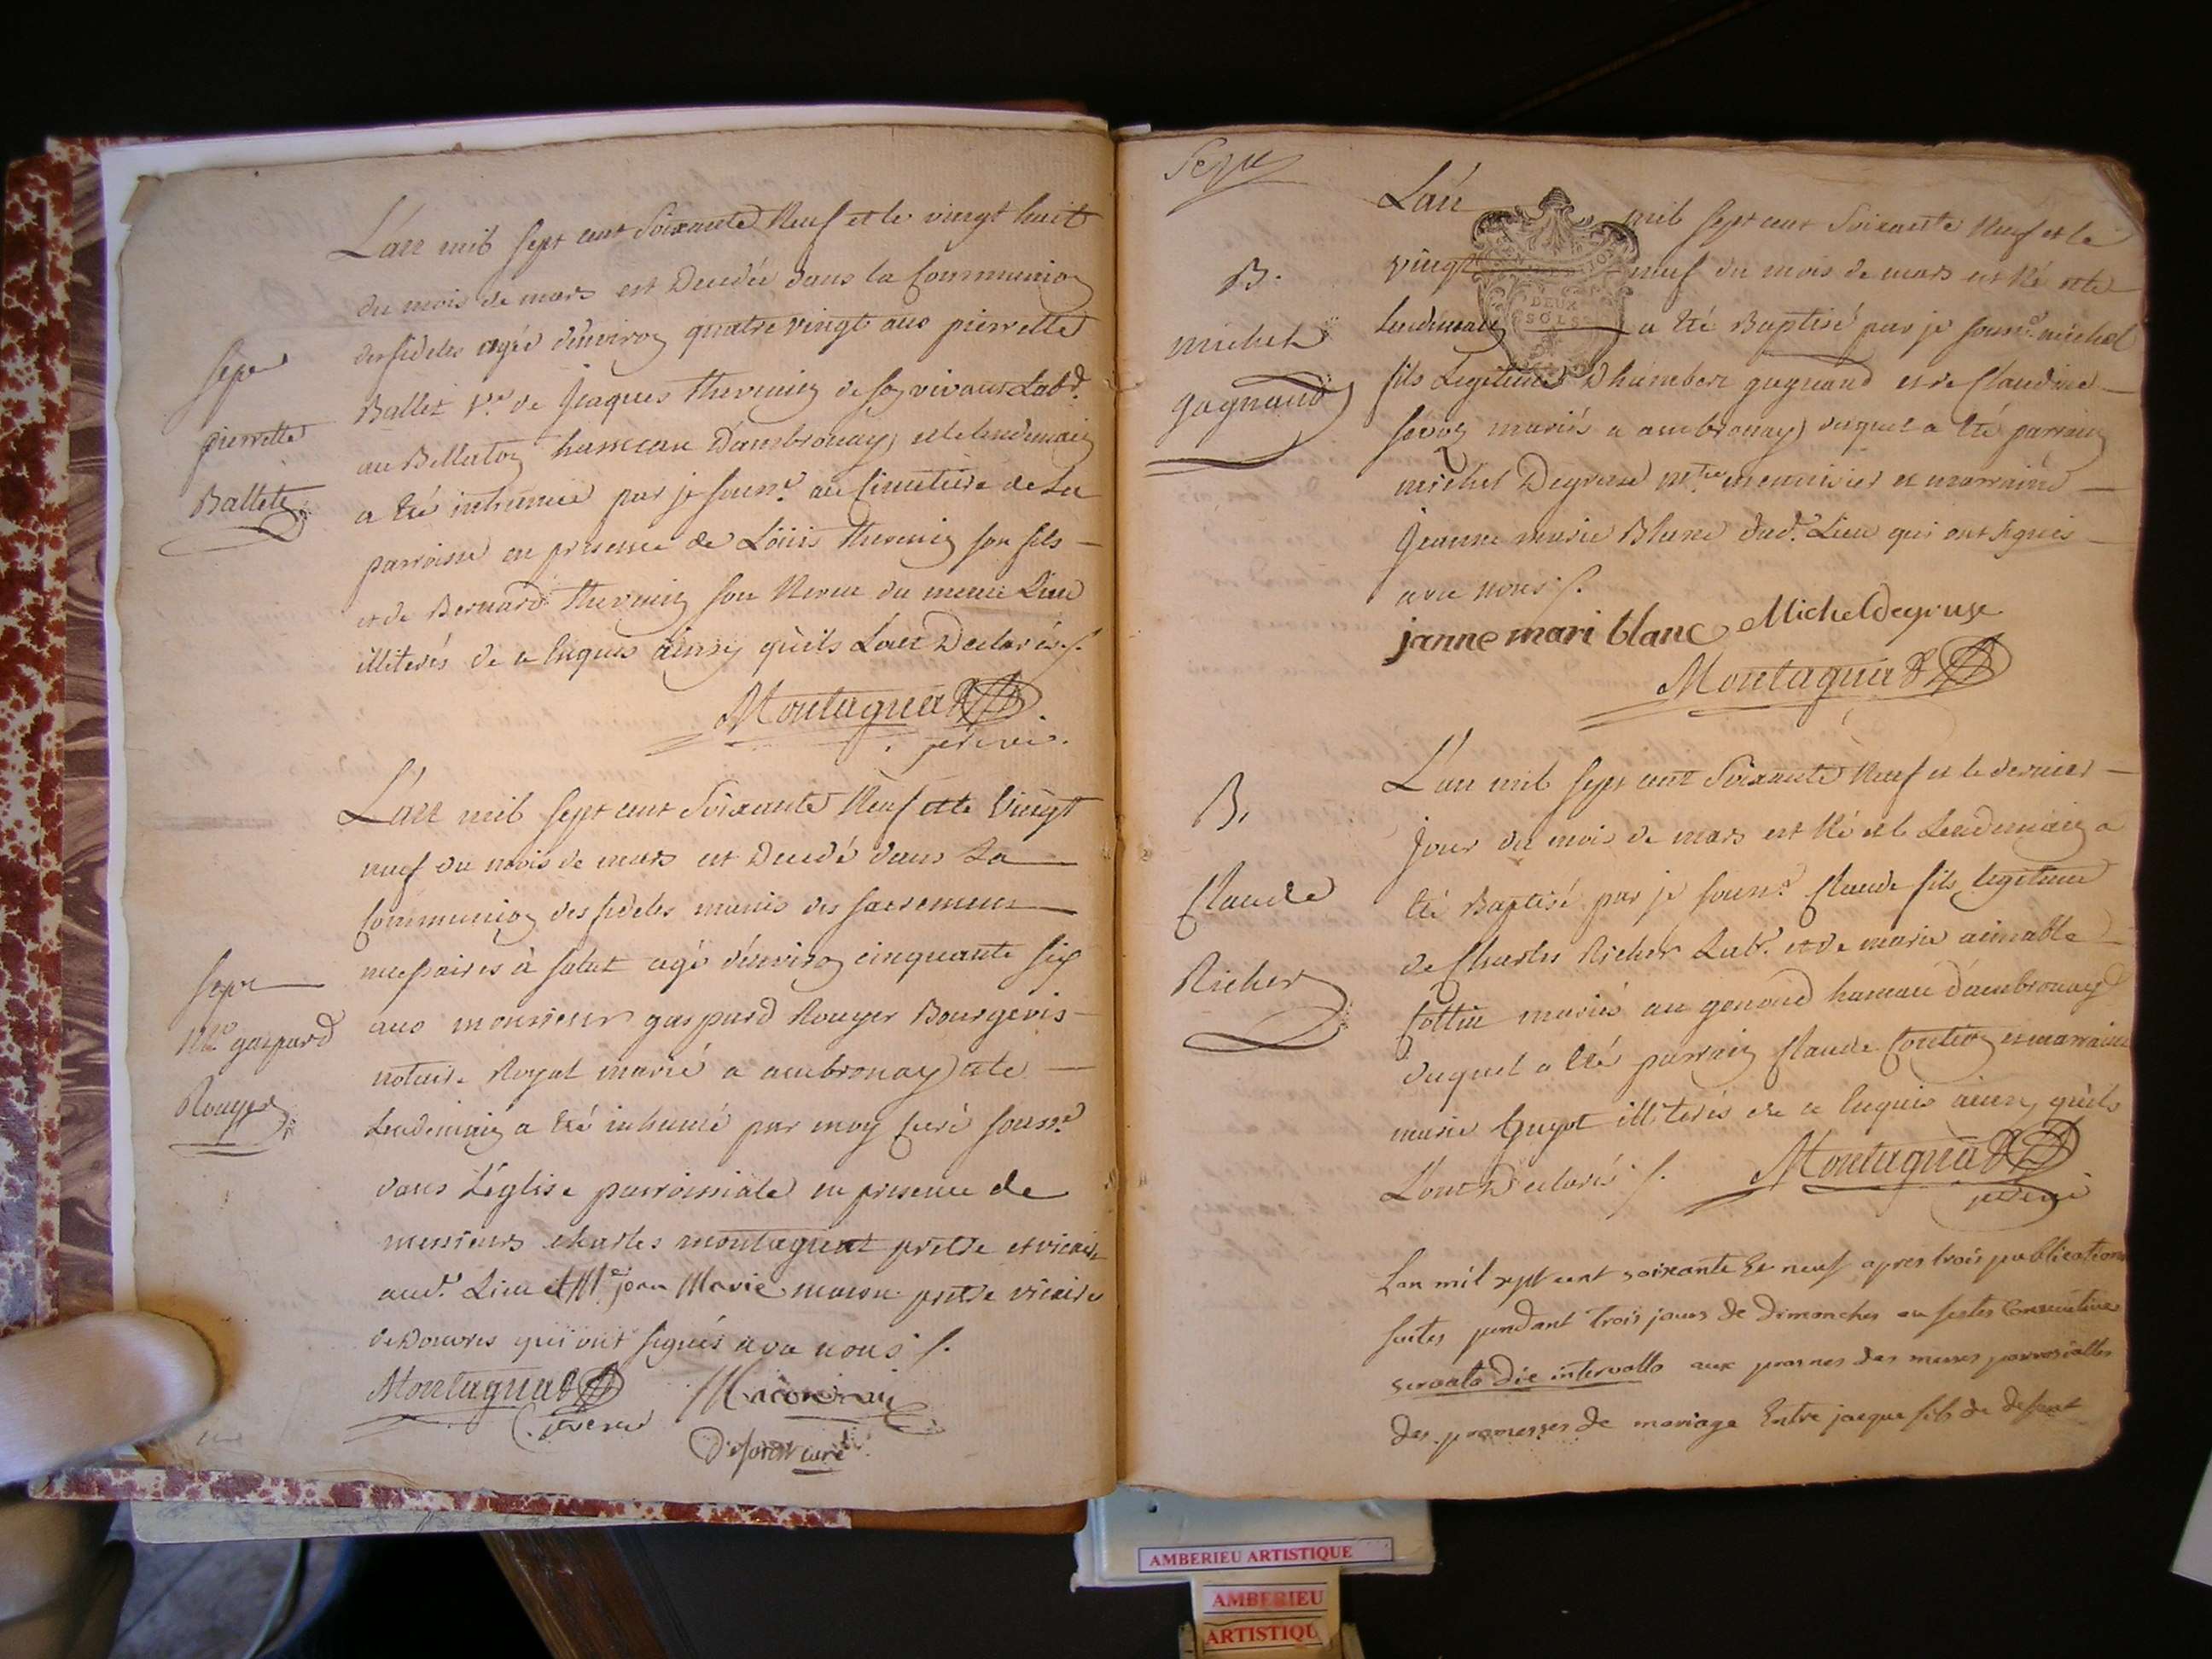 Sepe
pierrette
Ballet
L'an mil sept cent Soixante Neuf et le vingt huit
du mois de mars est Decedée dans la Communion
des fideles agée d'environ quatre vingt ans pierrette
Ballet v.e de Jaques thevenin de son vivant Lab.r
au Bellaton hameau d'ambronay, et le lendemain
a été inhumée par je souss.é au Cimetiere de La
parroisse en presence de Loüis thevenin son fils
et de Bernard thevenin son Neveu du meme Lieu
illiterés de ce Enquis ainsy qu'ils L'ont Declarés ./.
Montagnat
Sepe
M.e gaspard
Rouyer
L'an mil sept cent Soixante Neuf et le Vingt
neuf du mois de mars est Decedé dans La
Communion des fideles munis des sacremens
necessaires à salut agé d'environ cinquante six
ans monsieur gaspard Rouyer Bourgeois
notaire Royal marié a ambronay et le
Lendemain a été inhumé par moy Curé souss.é
dans L'église parroissiale en presence de
messieurs charles montagnat prêtre et vicaire
aud.t Lieu et M.e jean Marie macon prêtre vicaire
de Douvres qui ont signés avec nous ./.
Montagnat
curé
B.
michel
gagnaud
L'an mil sept cent Soixante Neuf et le
vingt neuf du mois de mars est Né et le
Lendemain a été Baptisé par je souss.é michel
fils Legitime D'humbert gagnaud et de Claudine
mariés a ambronay, duquel a été parrain
michel Degruse M.tre menuisier et marraine
Jeanne marie Blanc dud.t Lieu qui ont signés
avec nous ./.
janne mari blanc Michel degruse
Montagnat
B.
Claude
Richer
L'an mil sept cent Soixante Neuf et le dernier
Jour du mois de mars est Né et le Lendemain a
été Baptisé par je souss.é Claude fils legitime
de Charles Richer Lab.r et de marie aimable
Cottin mariés au genoud hameau d'ambronay
duquel a été parrain Claude et marraine
marie Guyot illiterés de ce Enquis ainsy qu'ils
L'ont Declarés ./. Montagnat
L'an mil sept cent soixante et neuf apres trois publications
faites pendant trois jours de dimanches ou festes Consecutives
servato die intervallo aux prosnes des messes parrossialles
des promesses de mariage Entre jacque fils de defunt
AMBERIEU ARTISTIQUE
AMBERIEU
ARTISTIQU